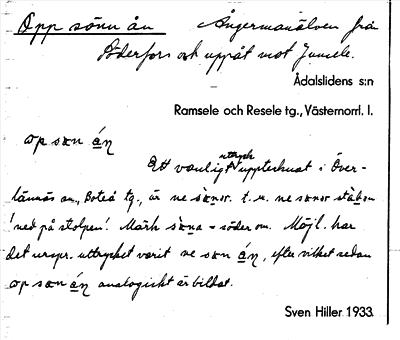 Opp sönn ån Ångermanälven från
Söderfors och uppåt mot Junsele.
Ådalslidens s:n
Ramsele och Resele tg., Västernorrl. l.
op sœn án
Ett vanligt uttryck upptecknat i Över-
lännäs sn., Boteå tg., är ne sœnor. t. ex. ne sœnor
'ned på stolpen'. Märk sœna = söder om. Möjl. har
det urspr. uttrycket varit ne sœn án, efter vilket sedan
op sœn án analogiskt är bildat.
Sven Hiller 1933